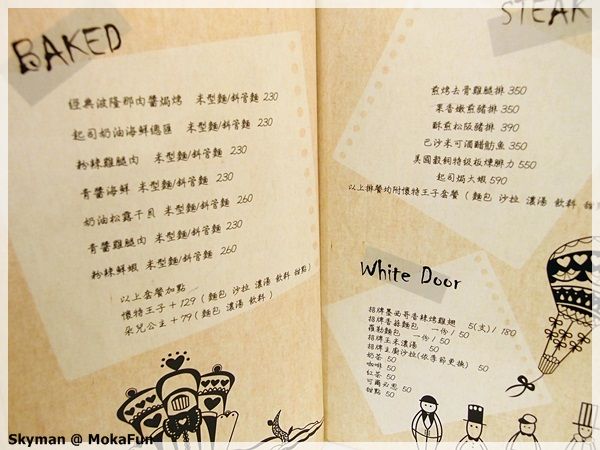 BAKED
經典波隆那肉醬焗烤 米型麵/斜管麵 230
起司奶油海鮮總匯 米型麵/斜管麵 230
粉辣雞腿肉 米型麵/斜管麵 230
青醬海鮮 米型麵/斜管麵 230
奶油松露干貝 米型麵/斜管麵 260
青醬雞腿肉 米型麵/斜管麵 230
粉辣鮮蝦 米型麵/斜管麵 260
以上套餐加點
懷特王子 + 129 ( 麵包 沙拉 濃湯 飲料 甜點 )
朵兒公主 + 79 ( 麵包 濃湯 飲料 )
STEAK
煎烤去骨雞腿排 350
果香嫩煎豬排 350
酥煎松阪豬排 390
巴沙米可酒醋魴魚 350
美國穀飼特級板煉腓力 550
起司焗大蝦 590
以上排餐均附懷特王子套餐 ( 麵包 沙拉 濃湯 飲料 甜
White Door
招牌墨西哥香辣烤雞翅 5(支) / 180
招牌香蒜麵包 一份 / 50
羅勒麵包 一份 / 50
招牌玉米濃湯 50
招牌主廚沙拉(依季節更換) 50
奶茶 50
咖啡 50
紅茶 50
可爾必思 50
甜點 50
Skyman @ MokaFun